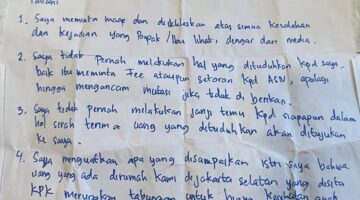 1. Saya meminta maap dan diikhlaskan atas semua kesalahan
dan kejadian yang Bapak/Ibu lihat, dengar dari media.
2. Saya tidak Pernah melakukan hal yang dituduhkan kpd saya
baik itu meminta Fee ataupun setoran kpd ASN, apalagi
hingga mengancam mutasi jika tidak di berikan.
3. Saya tidak pernah melakukan janji temu kpd siapapun dalam
hal serah terima uang yang dituduhkan akan ditujukan
ke saya.
4. Saya menguatkan apa yang disampaikan istri saya bahwa
uang yang ada dirumah kami di Jakarta Selatan yang disita
KPK merupakan tabungan untuk biaya Kesehatan anak